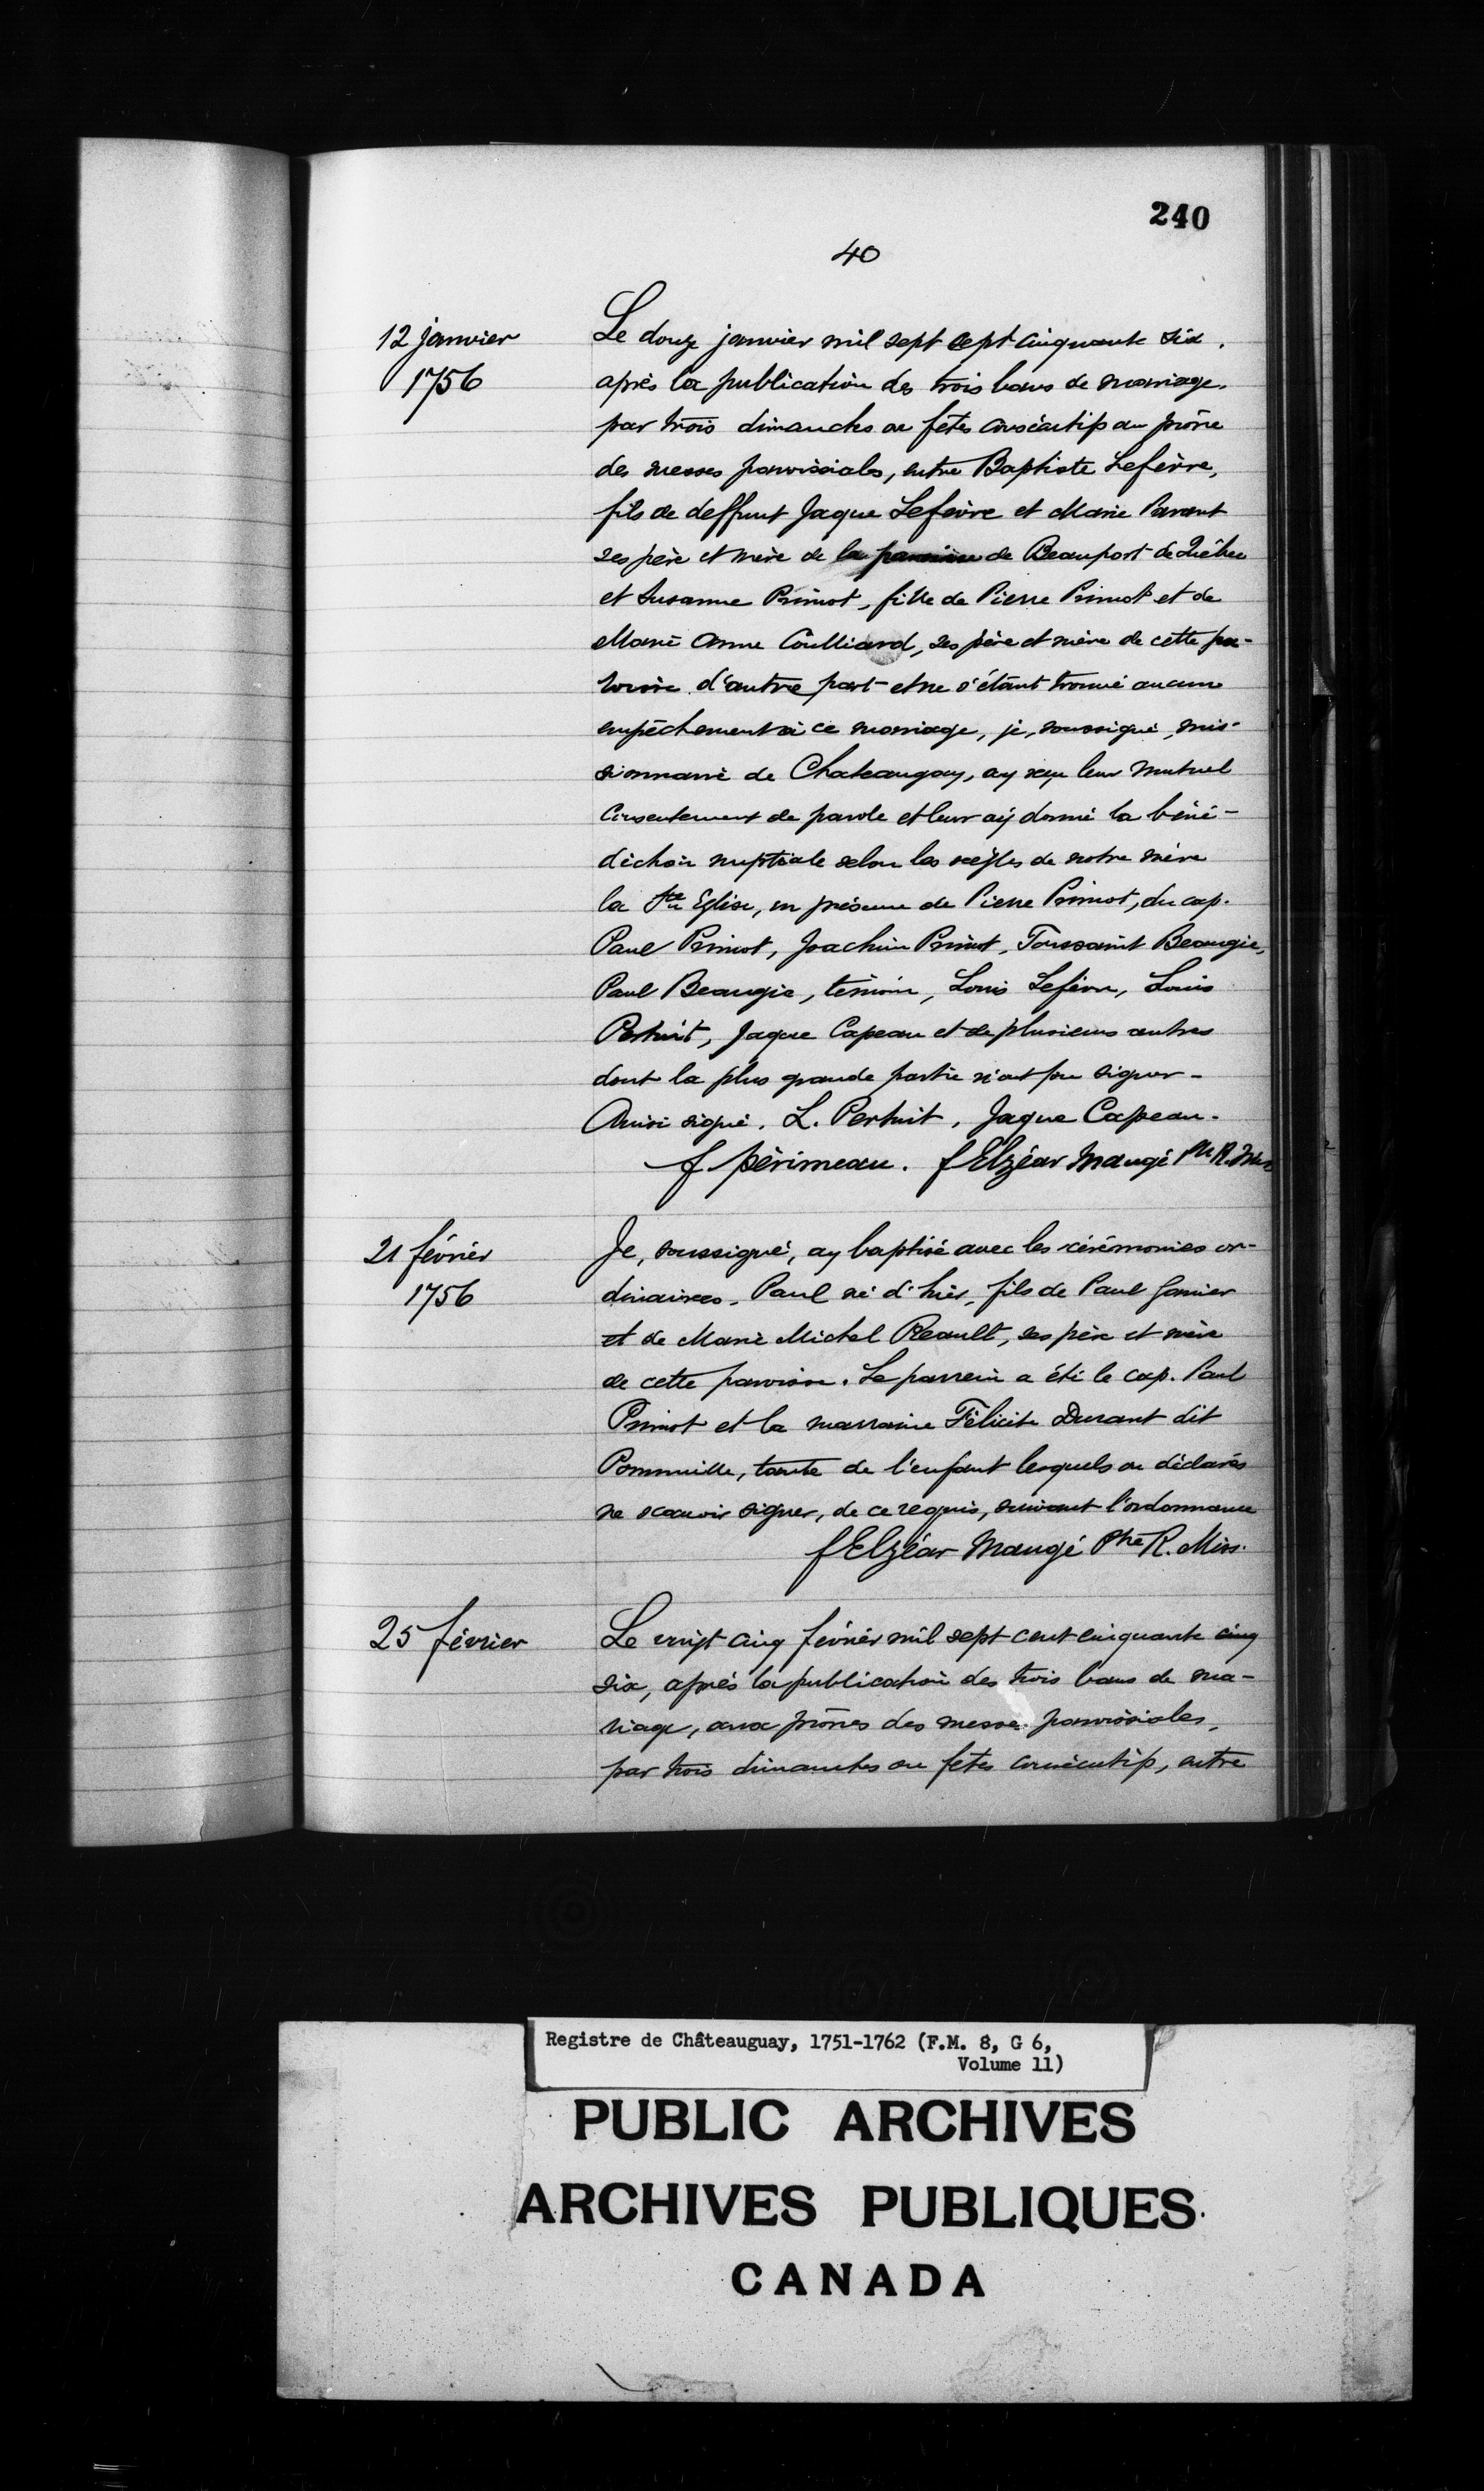 240
40
12 janvier
1756
Le douze janvier mil sept sept cinquante six.
après la publication des trois bans de mariage,
par trois dimanches ou fêtes consécutifs au prône
des messes paroissiales, entre Baptiste Lefèvre,
fils de deffunt Jaque Lefèvre et Marie Parent
ses père et mère de la paroisse de Beauport de Québec
et Susanne Primot, fille de Pierre Primot et de
Marie Anne Coulliard, ses père et mère de cette pa-
roisse d'autre part et ne s'étant trouvé aucune
empêchement à ce mariage, je, soussigné, mis-
sionnaire de Chateaugay, ay reçu leur mutuel
consentement de parole et leur ay donné la béné-
diction nuptiale selon les règles de notre mère
la Ste Eglise, en présence de Pierre Primot, du cap.
Paul Primot, Joachim Primot, Toussaint Beaugie,
Paul Beaugie, témoin, Louis Lefèvre, Louis
Pertuit, Jaque Capeau et de plusieurs autres
dont la plus grande partie n'ont pu signer -
Ainsi signé. L. Pertuit, Jaque Capeau.
f périmeau. f Elzéar Maugé Ptre R. Miss
21 février
1756
Je, soussigné, ay baptisé avec les cérémonies or-
dinaires, Paul né d'hier, fils de Paul Garnier
et de Marie Michel Reault, ses père et mère
de cette paroisse. Le parrein a été le cap. Paul
Primot et la marraine Félicité Durant dit
Pommville, tante de l'enfant lesquels on déclarés
ne scavoir signer, de ce requis, suivant l'ordonnance
f Elzéar Maugé Ptre R. Miss.
25 février
Le vingt cinq février mil sept cent cinquante cinq
six, après la publication des trois bans de ma-
riage, aux prônes des messes paroissiales,
par trois dimanches ou fêtes consécutifs, entre
Registre de Châteauguay, 1751-1762 (F.M. 8, G 6,
Volume 11)
PUBLIC ARCHIVES
ARCHIVES PUBLIQUES
CANADA